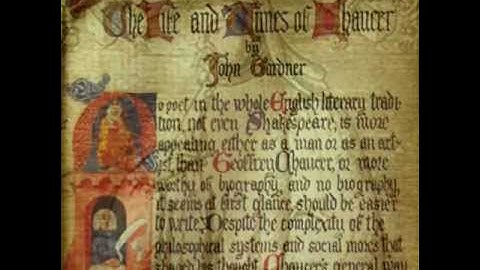 The Life and Times of Chaucer
by
John Gardner
No poet in the whole English literary tradi-
tion, not even Shakespeare, is more
appealing, either as a man or as an art-
ist, than Geoffrey Chaucer, or more
worthy of biography, and no biography,
it seems at first glance, should be easier
to write. Despite the complexity of the
philosophical systems and social mores that
shaped his thought, Chaucer's general way